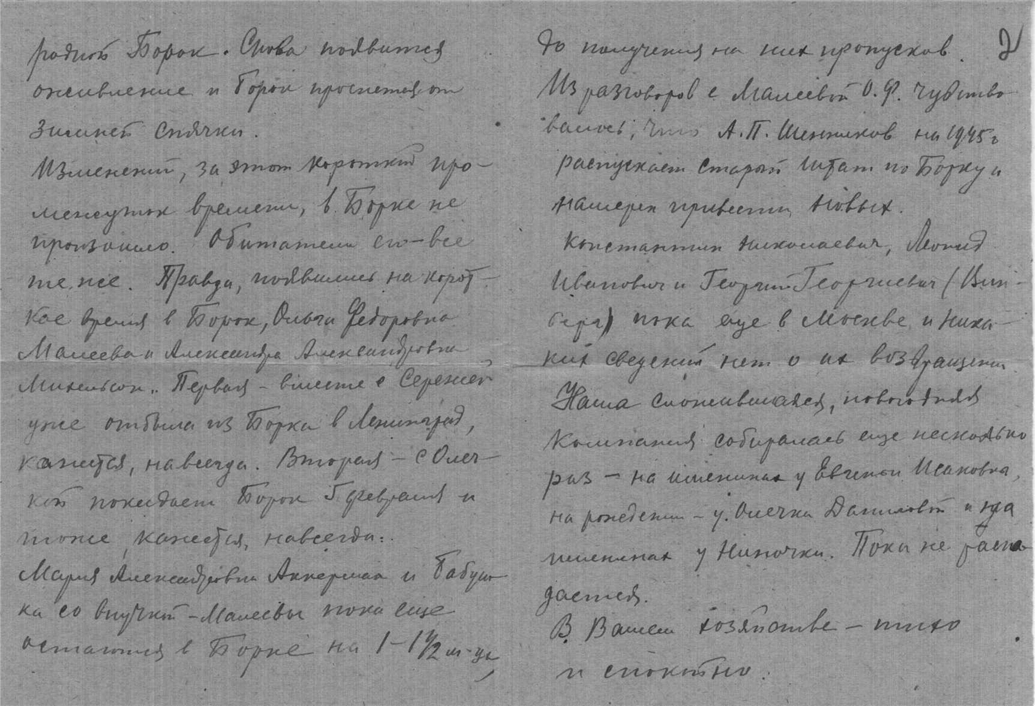 родной Борок. Снова появится
оживление и Борок проснется от
зимней спячки.
Изменений, за этот короткий про-
межуток времени, в Борке не
произошло. Обитатели его - все
те же. Правда, появились на корот-
кое время в Борок, Ольга Федоровна
Малеева и Александра Александровна
Михельсон. Первая - вместе с Сережей
уже отбыла из Борка в Ленинград,
кажется, навсегда. Вторая - с Олеч-
кой покидает Борок 5 февраля и
тоже, кажется, навсегда.
Мария Александровна Аккерман и бабуш-
ка со внучкой - Малеевы пока еще
остаются в Борке на 1-1 1/2 м-ца,
2
до получения на них пропусков.
Из разговоров с Малеевой О.Ф. чувство-
валось, что А.П. Шенников на 1945 г
распускает старый штат по Борку и
намерен привести новых.
Константин Николаевич, Леонид
Иванович и Георгий Георгиевич (Вин-
берг) пока еще в Москве и ника-
ких сведений нет о их возвращении.
Наша сложившаяся, новогодняя
компания собиралась еще несколько
раз - на именинах у Евгении Исаковны,
на рождении - у Олечки Даниловой и на
именинах у Ниночки. Пока не распа-
дается.
В Вашем хозяйстве - тихо
и спокойно.